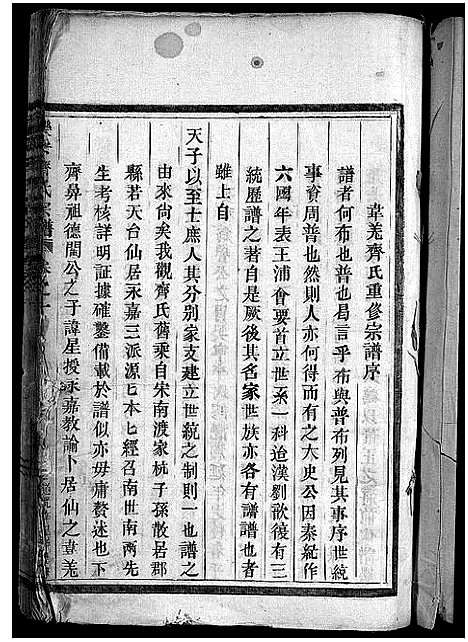 韋羌齊氏重修宗譜序
譜者何布也普也曷言乎布與普布列見其事序世統
事資周普也然則人亦何得而有之大史公因泰紀作
六國年表王浦會要首立世系一科迨漢劉歆復有三
統歷譜之著自厥後其名家世族亦各有譜譜也者
雖上自
天子以至士庶人其分別家支建立世統之制則一也譜之
由來尚矣我觀齊氏舊乘自宋南渡家杭子孫散居郡
縣若天台仙居永嘉三派源已本七經召南世南兩先
生考核詳明証據確鑿備載於譜似亦毋庸贅述也下
齊鼻祖德閏公之子諱星授永嘉教諭卜居仙之韋羌
齊氏宗譜